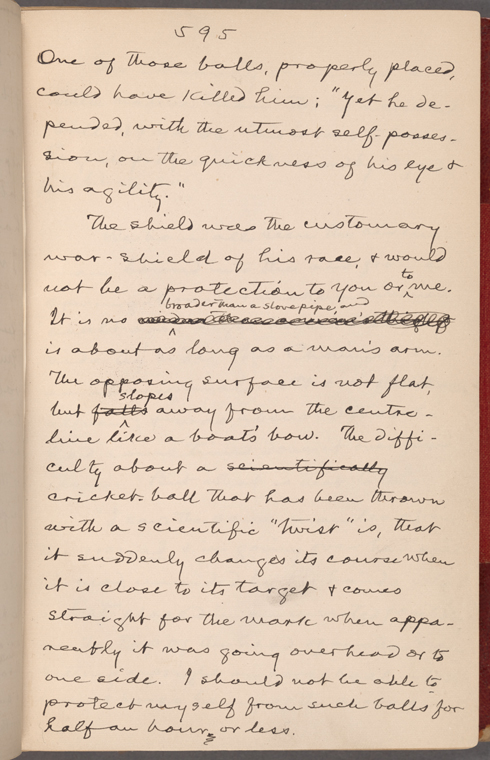 595
One of those balls, properly placed,
could have killed him; "Yet he de-
pended, with the utmost self-posses-
sion, on the quickness of his eye &
his agility."
The shield was the customary
war-shield of his race, & would
not be a protection to you or to me.
broader than a stovepipe, and
It is no
is about as long as a man's arm.
The opposing surface is not flat,
slopes
but falls away from the centre-
line like a boat's bow. The diffi-
culty about a scientifically
cricket-ball that has been thrown
with a scientific "twist" is, that
it suddenly changes its course when
it is close to its target & comes
straight for the mark when appa-
rently it was going overhead or to
one side. I should not be able to
protect myself from such balls for
half an hour, or less.